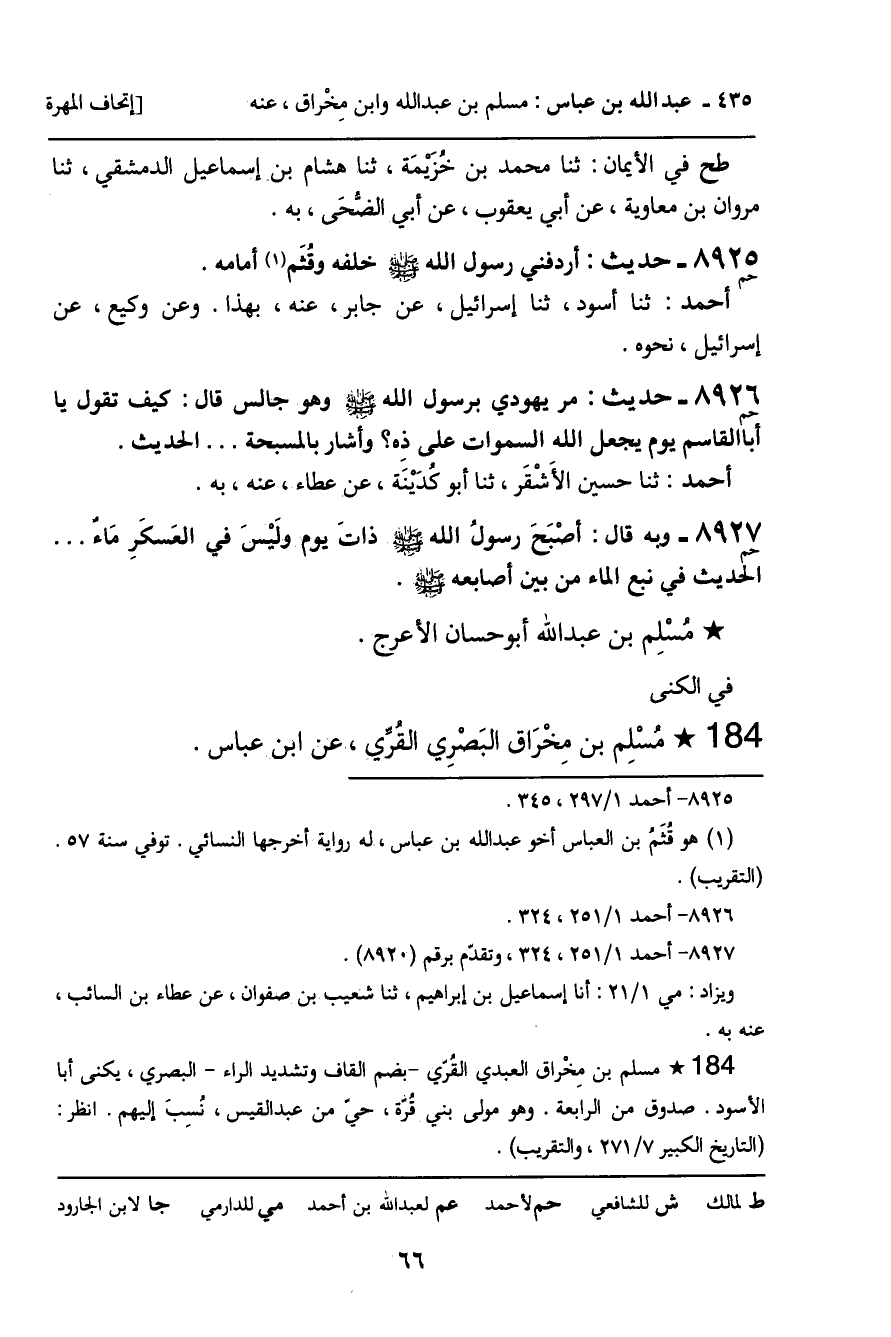 ٤٣٥ ـ عبدالله بن عباس : مسلم بن عبدالله وابن مِخْراق ، عنه [إتحاف المهرة
طح في الأيمان : ثنا محمد بن خُزَيْمَة ، ثنا هشام بن إسماعيل الدمشقي ، ثنا
مروان بن معاوية ، عن أبي يعقوب ، عن أبي الضُّحَى ، به .
٨٩٢٥ ـ حديث : أردفني رسول الله ﷺ خلفه وقُثَم(١) أمامه .
حم
أحمد : ثنا أسود ، ثنا إسرائيل ، عن جابر ، عنه ، بهذا . وعن وكيع ، عن
إسرائيل ، نحوه .
٨٩٢٦ ـ حديث : مر يهودي برسول الله ﷺ وهو جالس قال : كيف تقول يا
حم
أباالقاسم يوم يجعل الله السموات على ذِه؟ وأشار بالمسبحة ... الحديث .
أحمد : ثنا حسين الأَشْقَر ، ثنا أبو كُدَيْنَة ، عن عطاء ، عنه ، به .
٨٩٢٧ ـ وبه قال : أصْبَحَ رسولُ الله ﷺ ذاتَ يوم ولَيْسَ في العَسكَرِ مَاءٌ ...
حم
الحديث في نبع الماء من بين أصابعه ﷺ .
★ مُسْلِم بن عبدالله أبوحسان الأعرج .
في الكنى
184 ★ مُسْلِم بن مِخْرَاق البَصْرِي القُرِّي ، عن ابن عباس .
٨٩٢٥- أحمد ٢٩٧/١ ، ٣٤٥ .
(١) هو قُثَمُ بن العباس أخو عبدالله بن عباس ، له رواية أخرجها النسائي . توفي سنة ٥٧ .
(التقريب) .
٨٩٢٦- أحمد ٢٥١/١ ، ٣٢٤ .
٨٩٢٧- أحمد ٢٥١/١ ، ٣٢٤ ، وتقدّم برقم (٨٩٢٠) .
ويزاد : مي ٢١/١ : أنا إسماعيل بن إبراهيم ، ثنا شعيب بن صفوان ، عن عطاء بن السائب ،
عنه به .
184 ★ مسلم بن مِخْراق العبدي القُرّي -بضم القاف وتشديد الراء - البصري ، يكنى أبا
الأسود . صدوق من الرابعة . وهو مولى بني قُرَّة ، حيّ من عبدالقيس ، نُسِبَ إليهم . انظر :
(التاريخ الكبير ٢٧١/٧ ، والتقريب) .
ط لمالك ش للشافعي حم لأحمد عم لعبدالله بن أحمد مي للدارمي جا لابن الجارود
٦٦